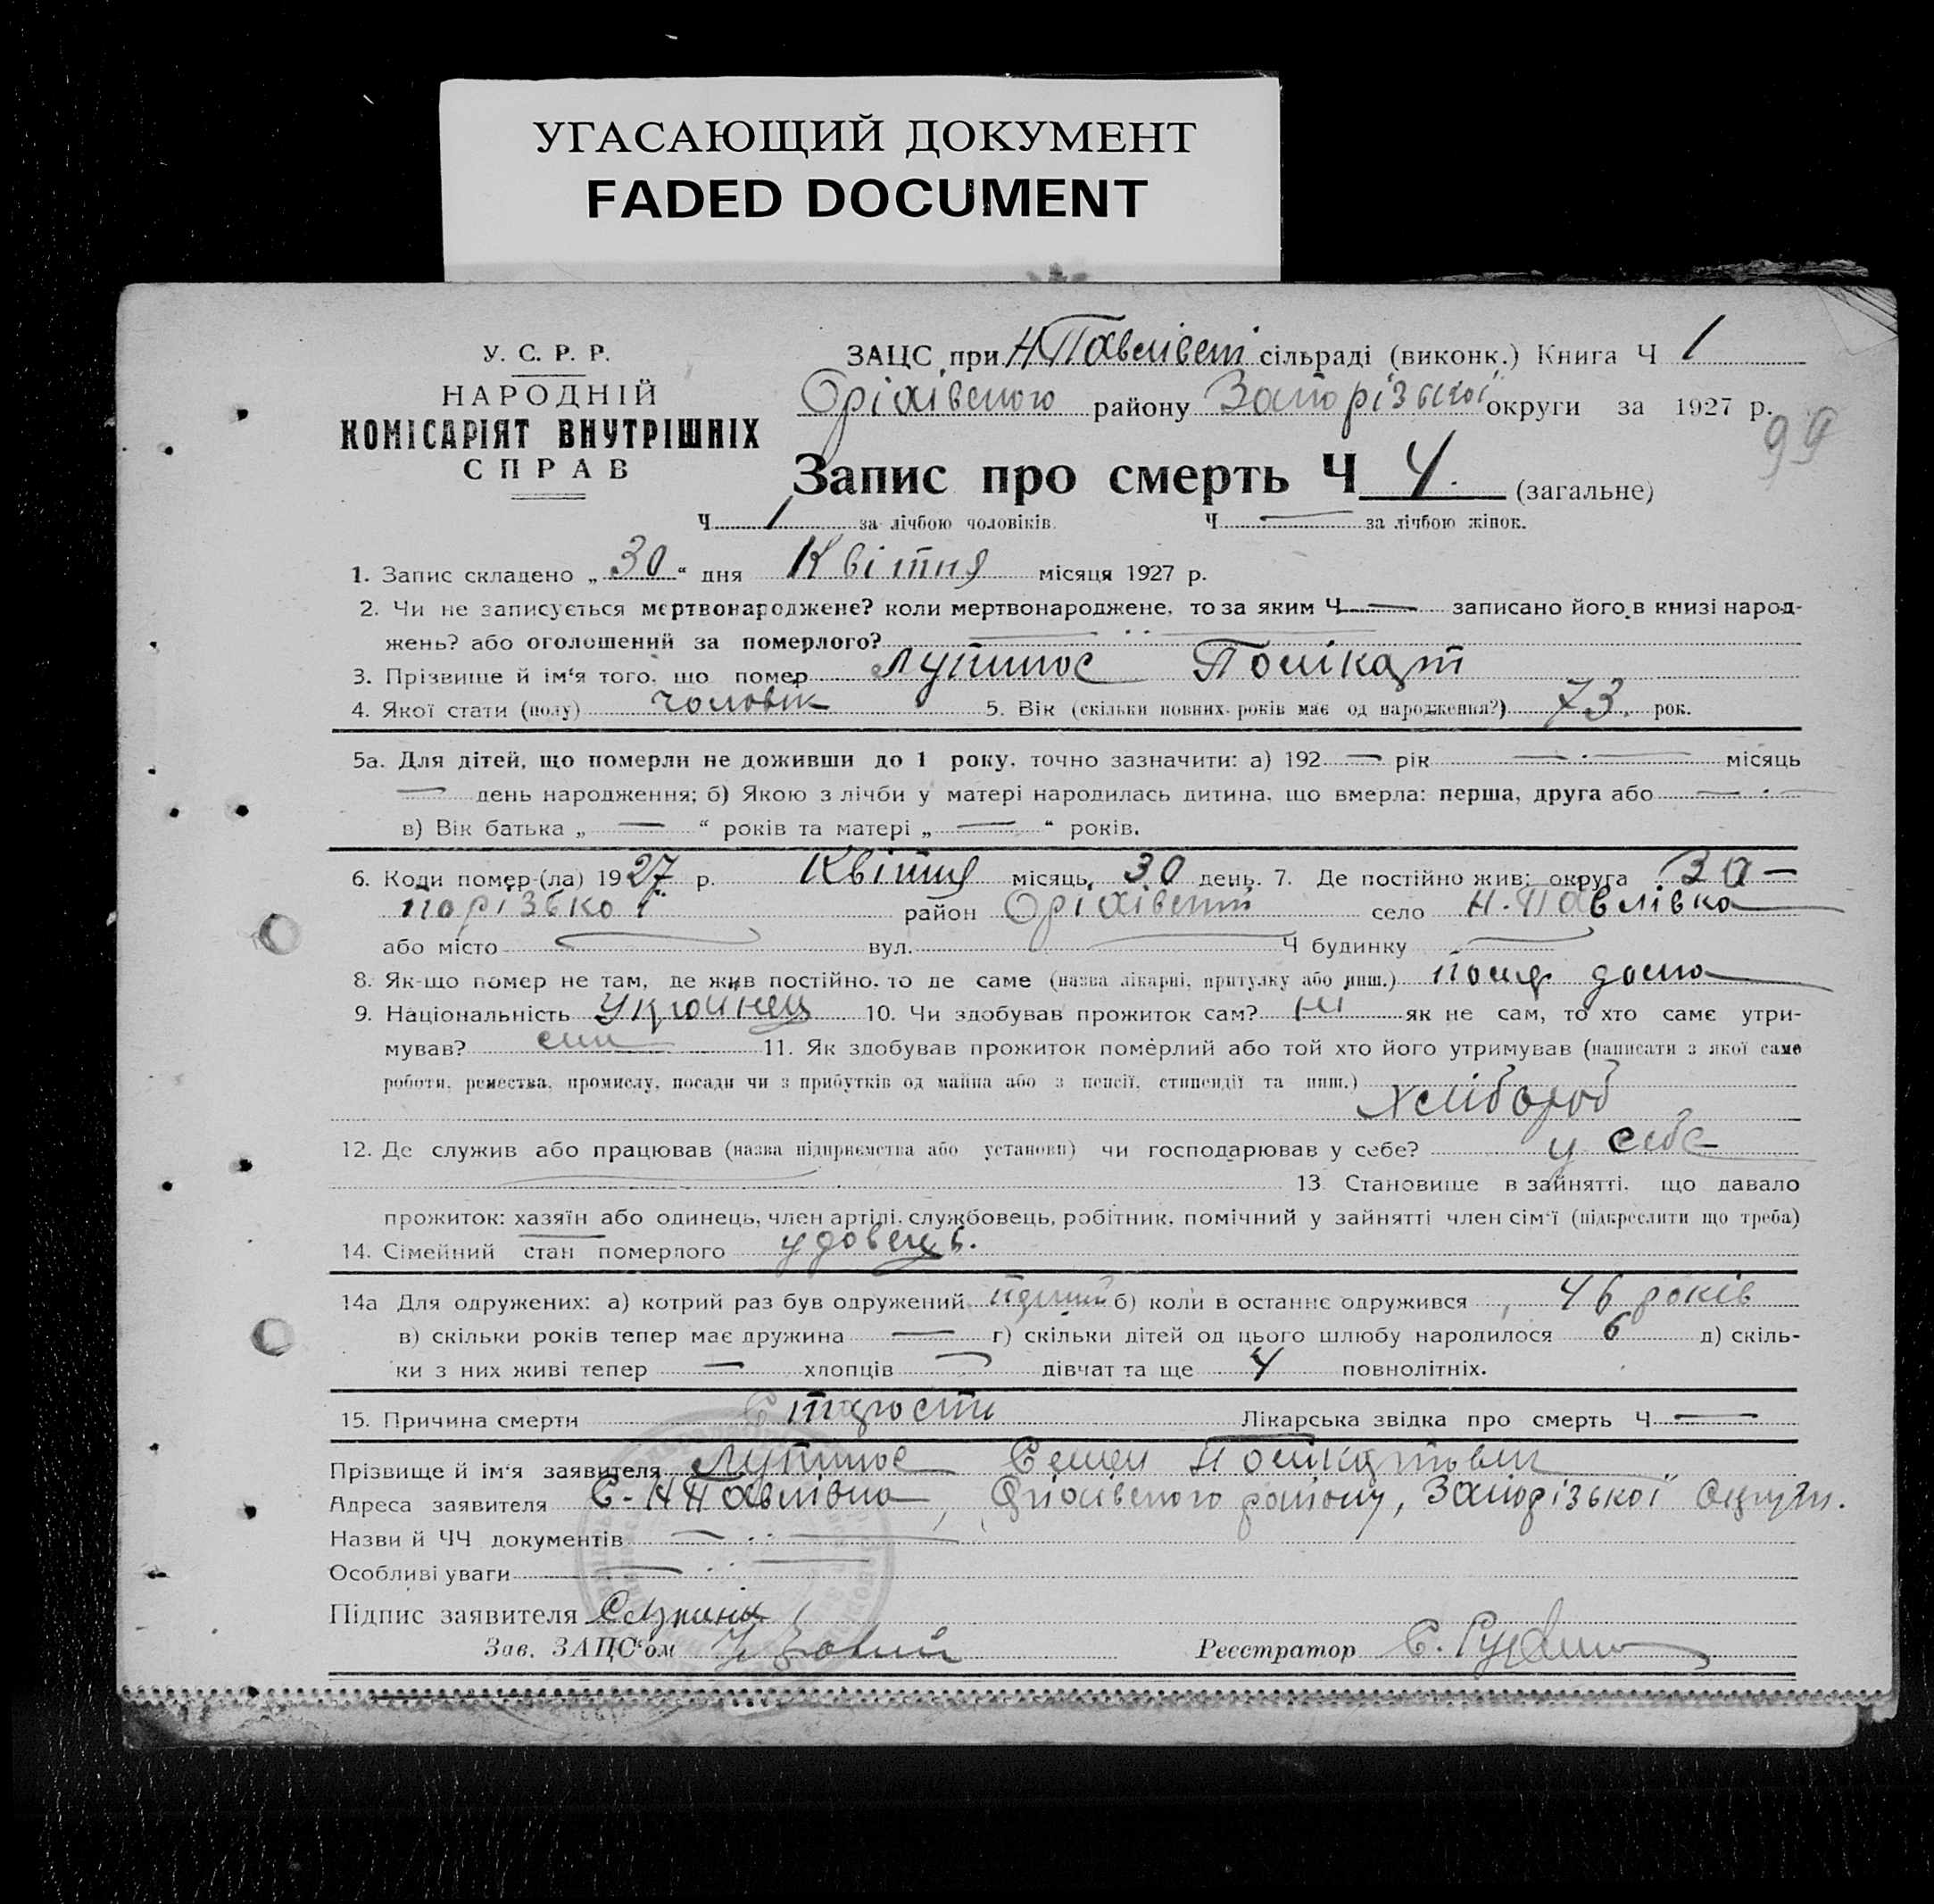 УГАСАЮЩИЙ ДОКУМЕНТ
FADED DOCUMENT
У. С. Р. Р.
НАРОДНІЙ
КОМІСАРІЯТ ВНУТРІШНІХ
СПРАВ
ЗАЦС при Н Павлівст сільраді (виконк.) Книга Ч 1
Оріхівського району Запорізької округи за 1927 р.
99
Запис про смерть Ч 4. (загальне)
Ч 1 за лічбою чоловіків. Ч — за лічбою жінок.
1. Запис складено „30“ дня Квітня місяця 1927 р.
2. Чи не записується мертвонароджене? коли мертвонароджене, то за яким Ч — записано його в книзі народ-
жень? або оголошений за померлого?
3. Прізвище й ім'я того, що помер Полікарп
4. Якої стати (полу) чоловік 5. Вік (скільки повних років має од народження?) 73. рок.
5а. Для дітей, що померли не доживши до 1 року, точно зазначити: а) 192 — рік — місяць
— день народження; б) Якою з лічби у матері народилась дитина, що вмерла: перша, друга або —
в) Вік батька „ — “ років та матері „ — “ років.
6. Коли помер (ла) 1927 р. Квітня місяць, 30 день. 7. Де постійно жив: округа За-
порізької район Оріхівськ село Н. Павлівка
або місто — вул. — Ч будинку —
8. Як-що помер не там, де жив постійно, то де саме (назва лікарні, притулку або инш.) помер дома
9. Національність Українец 10. Чи здобував прожиток сам? ні як не сам, то хто саме утри-
мував? син 11. Як здобував прожиток померлий або той хто його утримував (написати з якої саме
роботи, ремества, промислу, посади чи з прибутків од майна або з пенсії, стипендії та инш.)
Хлібороб
12. Де служив або працював (назва підприємства або установи) чи господарював у себе? у себе
13. Становище в зайнятті, що давало
прожиток: хазяїн або одинець, член артілі, службовець, робітник, помічний у зайнятті член сім'ї (підкреслити що треба)
14. Сімейний стан померлого удовець.
14а Для одружених: а) котрий раз був одружений б) коли в останнє одружився 46 років
в) скільки років тепер має дружина — г) скільки дітей од цього шлюбу народилося 6 д) скіль-
ки з них живі тепер — хлопців — дівчат та ще 4 повнолітніх.
15. Причина смерти Старости Лікарська звідка про смерть Ч —
Прізвище й ім'я заявителя Семен Полікарпович
Адреса заявителя С. Н Павлівка, Оріхівського району, Запорізької Округи.
Назви й ЧЧ документів —
Особливі уваги —
Підпис заявителя
Зав. ЗАЦС'ом
Реєстратор С.